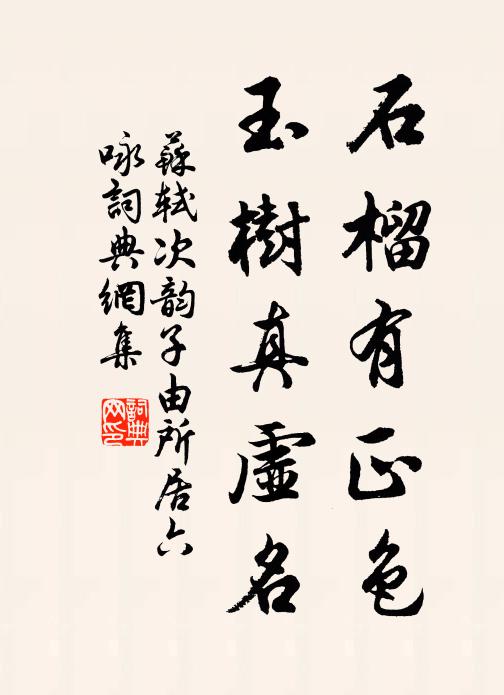 石榴有正色
玉樹真虛名
蘇軾次韵子由所居六
咏詞典網集
詞典网印